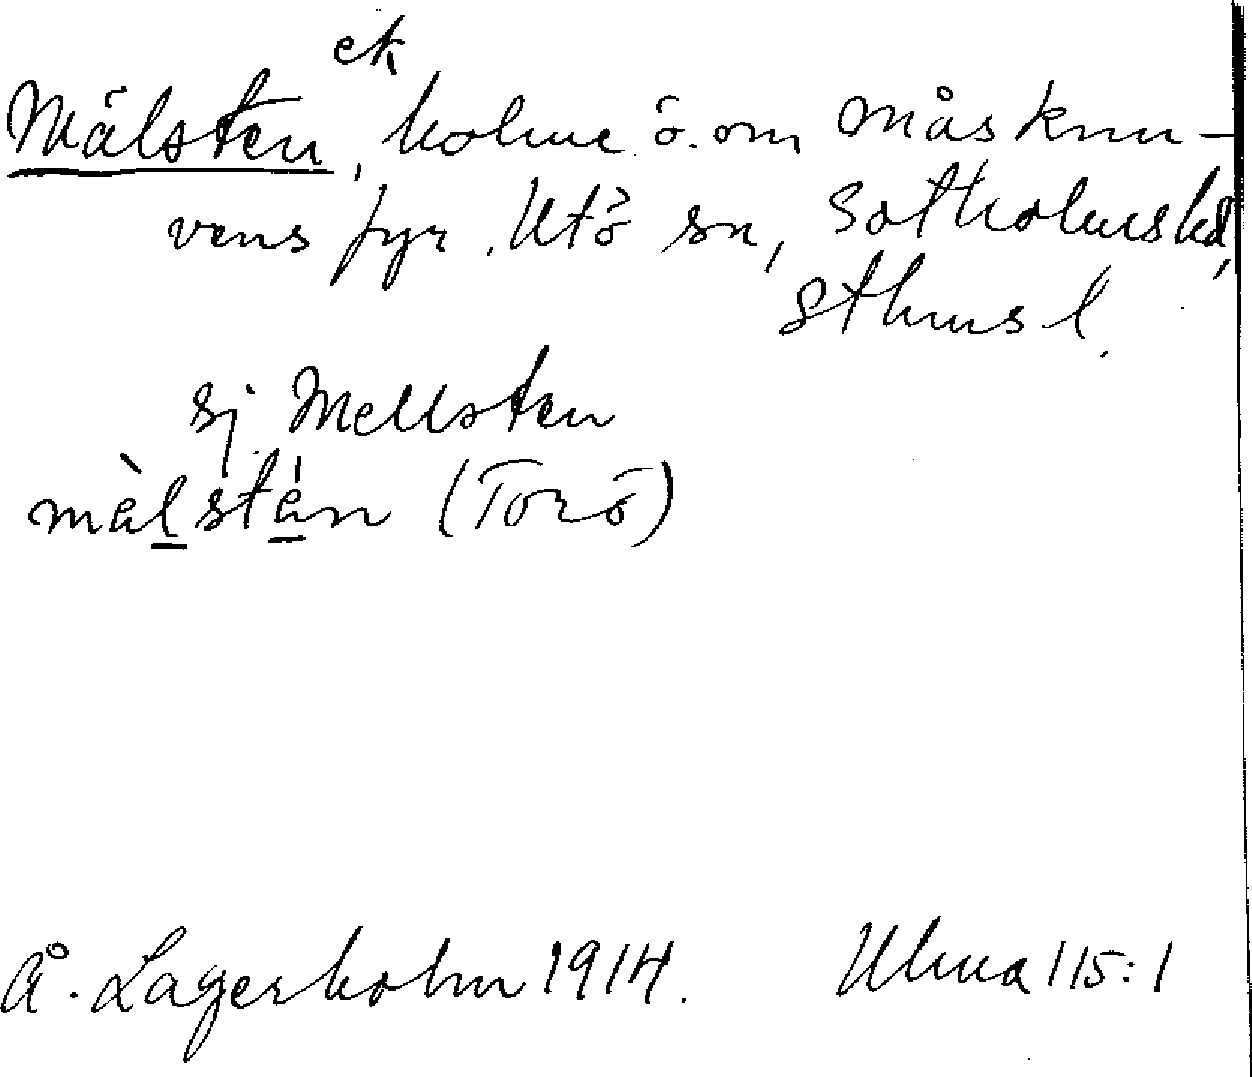 ek
Mälsten, holme ö. om Måsknu-
vens fyr. Utö sn, Sotholms hd,
Sthms l.
sj. Mellsten
màlstán (Torö)
Å. Lagerholm 1914. Ulma 115:1